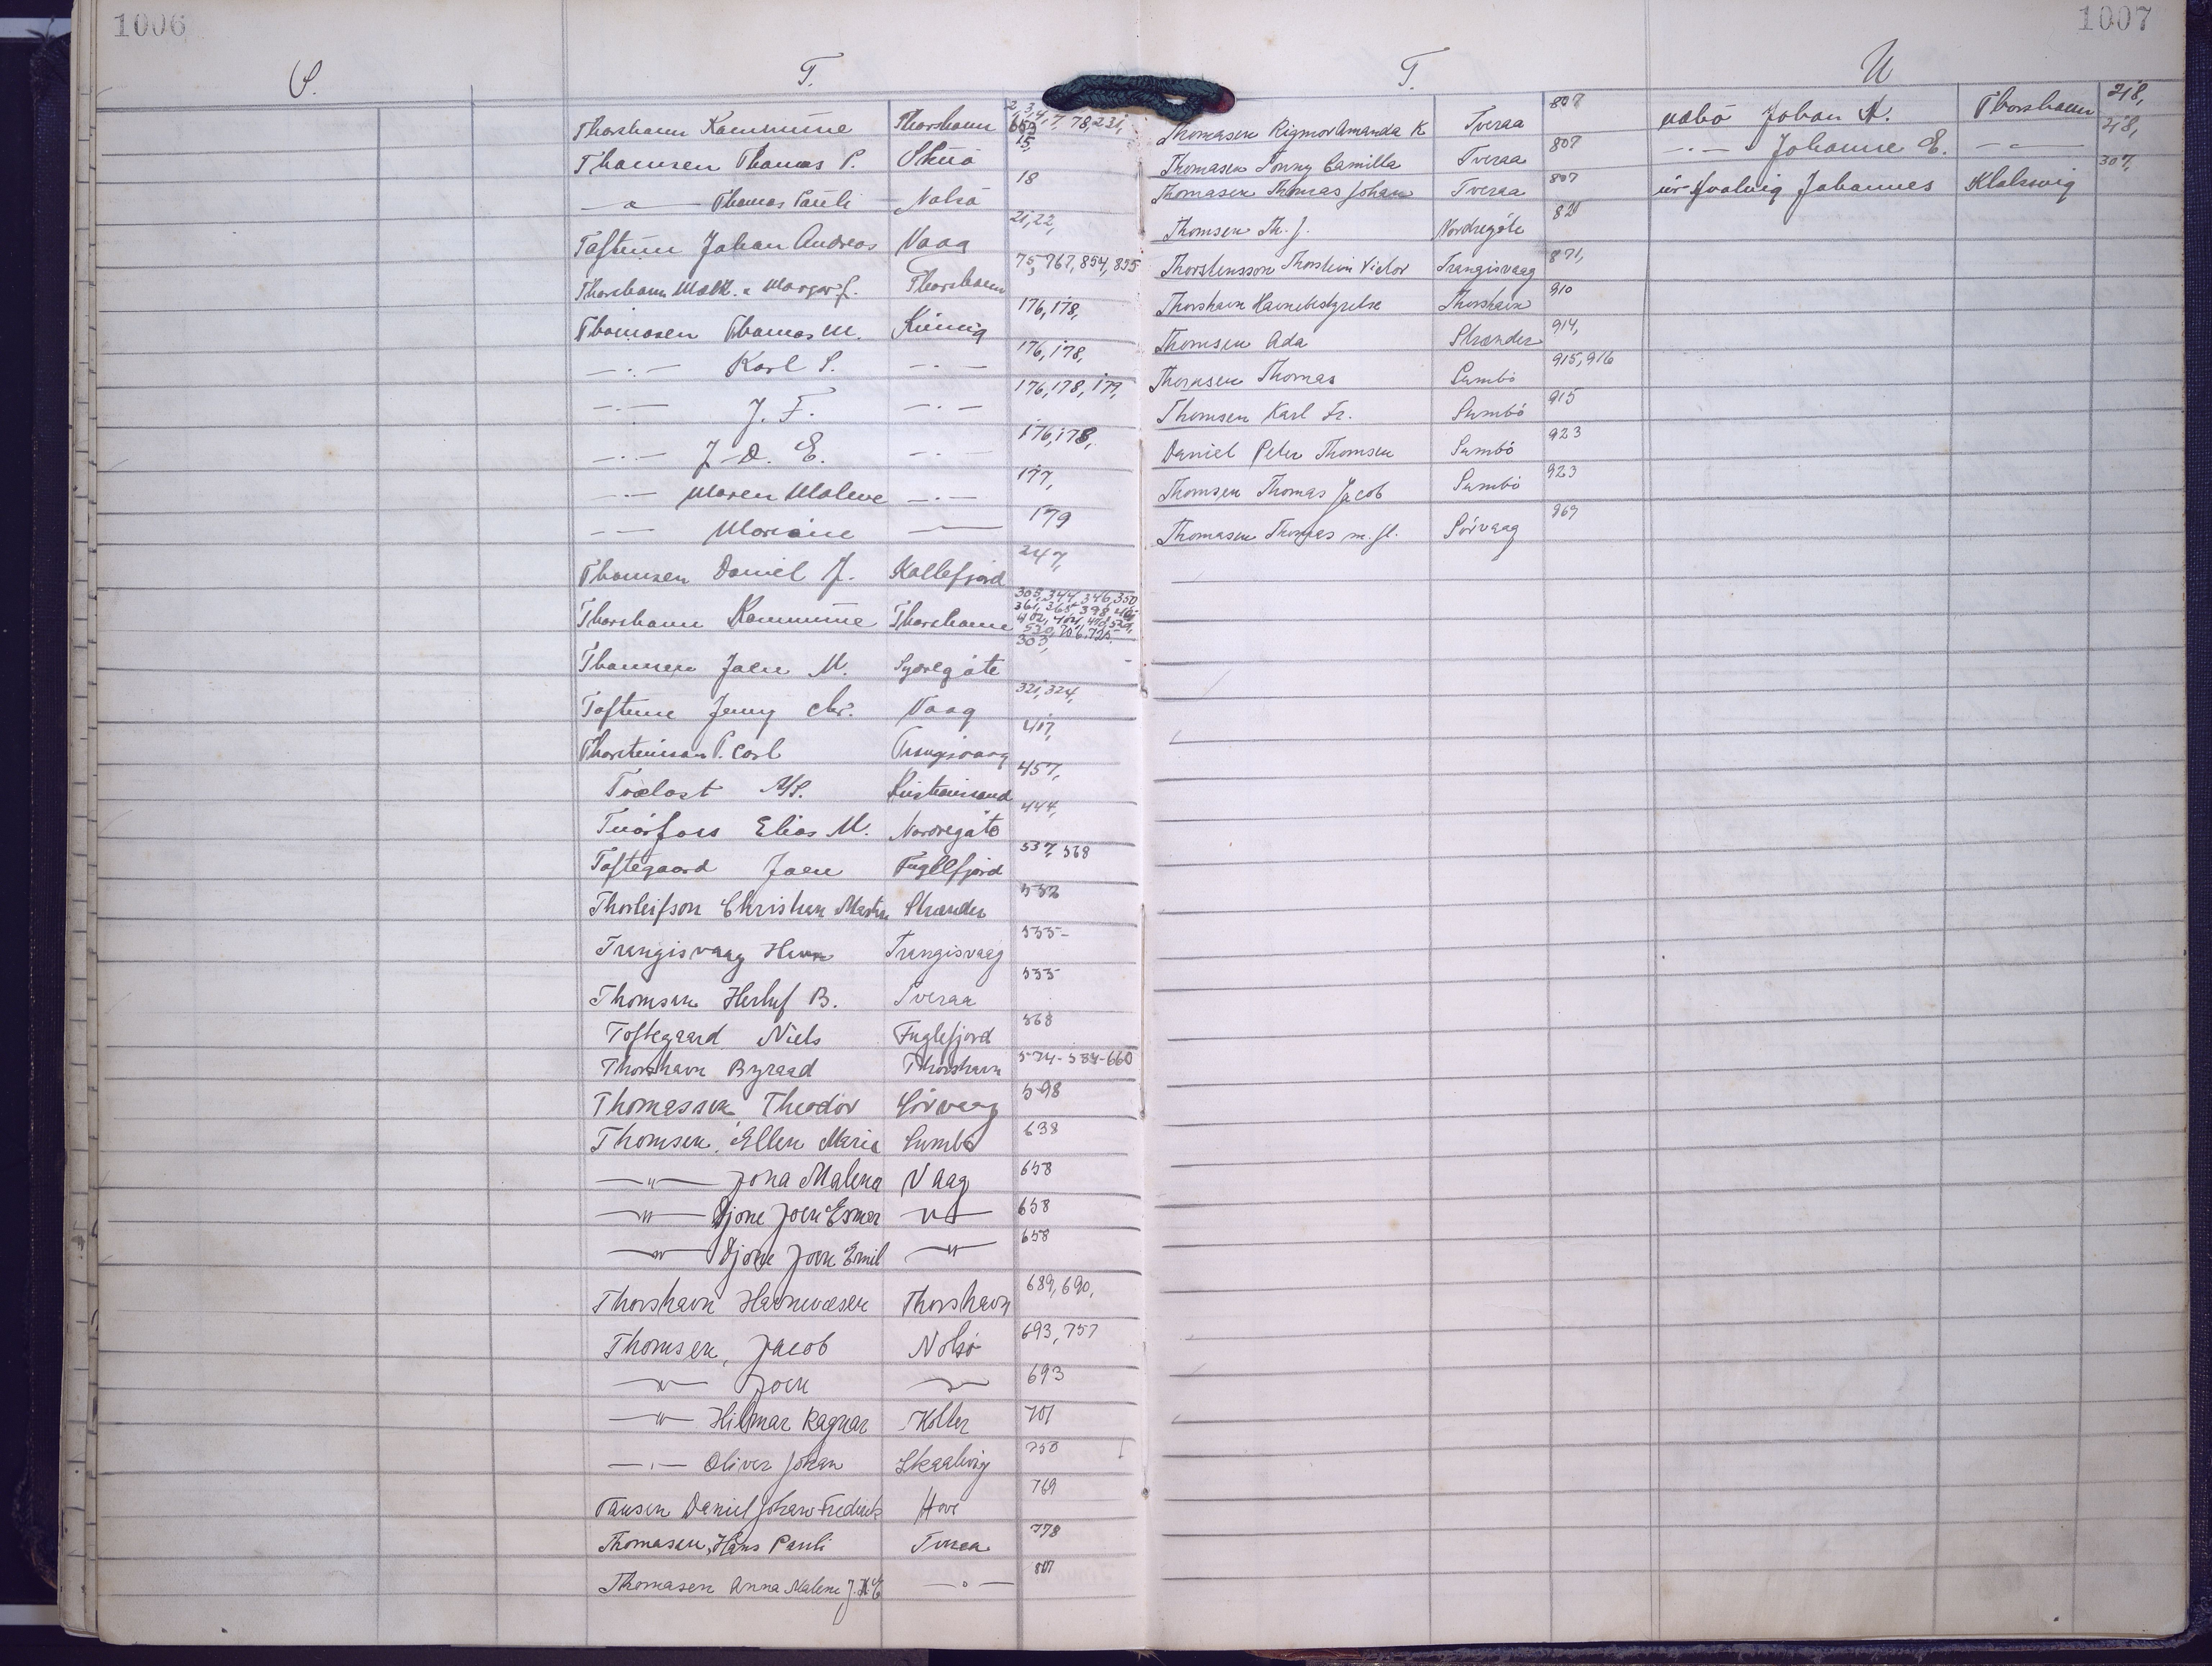 1006
S.
T.
Thorshavn Kommune Thorshavn 2, 3, 4, 7, 78, 231, 653
Thomsen Thomas P. Skuö 15,
—〃— Thomas Pauli Nolsö 18
Toftum Johan Andreas Vaag 21, 22,
Thorshavn Mælk. & Margarf. Thorshavn 75, 767, 854, 855
Thomasen Thomas M. 176, 178,
—〃— Karl S. —〃— 176, 178,
—〃— J. F. —〃— 176, 178, 179,
—〃— J. D. E. —〃— 176, 178,
—〃— Maren Malene —〃— 177,
—〃— Mariane —〃— 179
Thomsen Daniel J. Kollefjord 247,
Thorshavn Kommune Thorshavn 305, 344, 346, 350 361, 365, 398, 530, 706, 725
Thomsen Joen M. Syoregöte 303,
Toftum Jenny Chr. Vaag 321, 324,
Thorsteinsson P. Carl Trangisvaag 417,
M/S. Kristiansand 457,
Elias M. Nordregöte 444,
Toftegaard Joen Fuglefjord 537, 568
Thorleifson Christian Martin Strænder 532
Trangisvaag Havn Trangisvaag 535
Thomsen Herluf B. Tveraa 535
Toftegaard Niels Fuglefjord 568
Thorshavn Byraad Thorshavn 574-584-660
Thomassen Theodor Sörvaag 598
Thomsen, Ellen Maria Sumbö 638
—〃— Jona Malena Vaag 658
—〃— Djone Joen Esmar —〃— 658
—〃— Djone Joen Emil —〃— 658
Thorshavn Havnevæsen Thorshavn 689, 690,
Thomsen, Jacob Nolsö 693, 757
—〃— Joen —〃— 693
—〃— Hilmar Ragnar Kolter 701
—〃— Oliver Johan Skaalvig 750
Tausen Daniel Johan Frederik Hove 769
Thomasen, Hans Pauli Tveraa 778
Thomasen Anna Malene J. K. E —〃— 807
1007
T.
Thomasen Rigmor Amanda K Tveraa 807
Thomasen Sonny Camilla Tveraa 807
Thomasen Thomas Johan Tveraa 807
Thomsen Th. J. Nordregöte 821
Thorsteinsson Thorstein Victor Trangisvaag 871,
Thorshavn Havnebestyrelse Thorshavn 910
Thomsen Ada Strænder 914,
Thomsen Thomas Sumbö 915, 916
Thomsen Karl Fr. Sumbö 915
Daniel Peter Thomsen Sumbö 923
Thomsen Thomas Jacob Sumbö 923
Thomasen Thomas m. fl. Sörvaag 969
U
Johan K. Thorshavn 218,
—〃— Johanne E. —〃— 218,
úr Hvalvig Johannes Klaksvig 307,